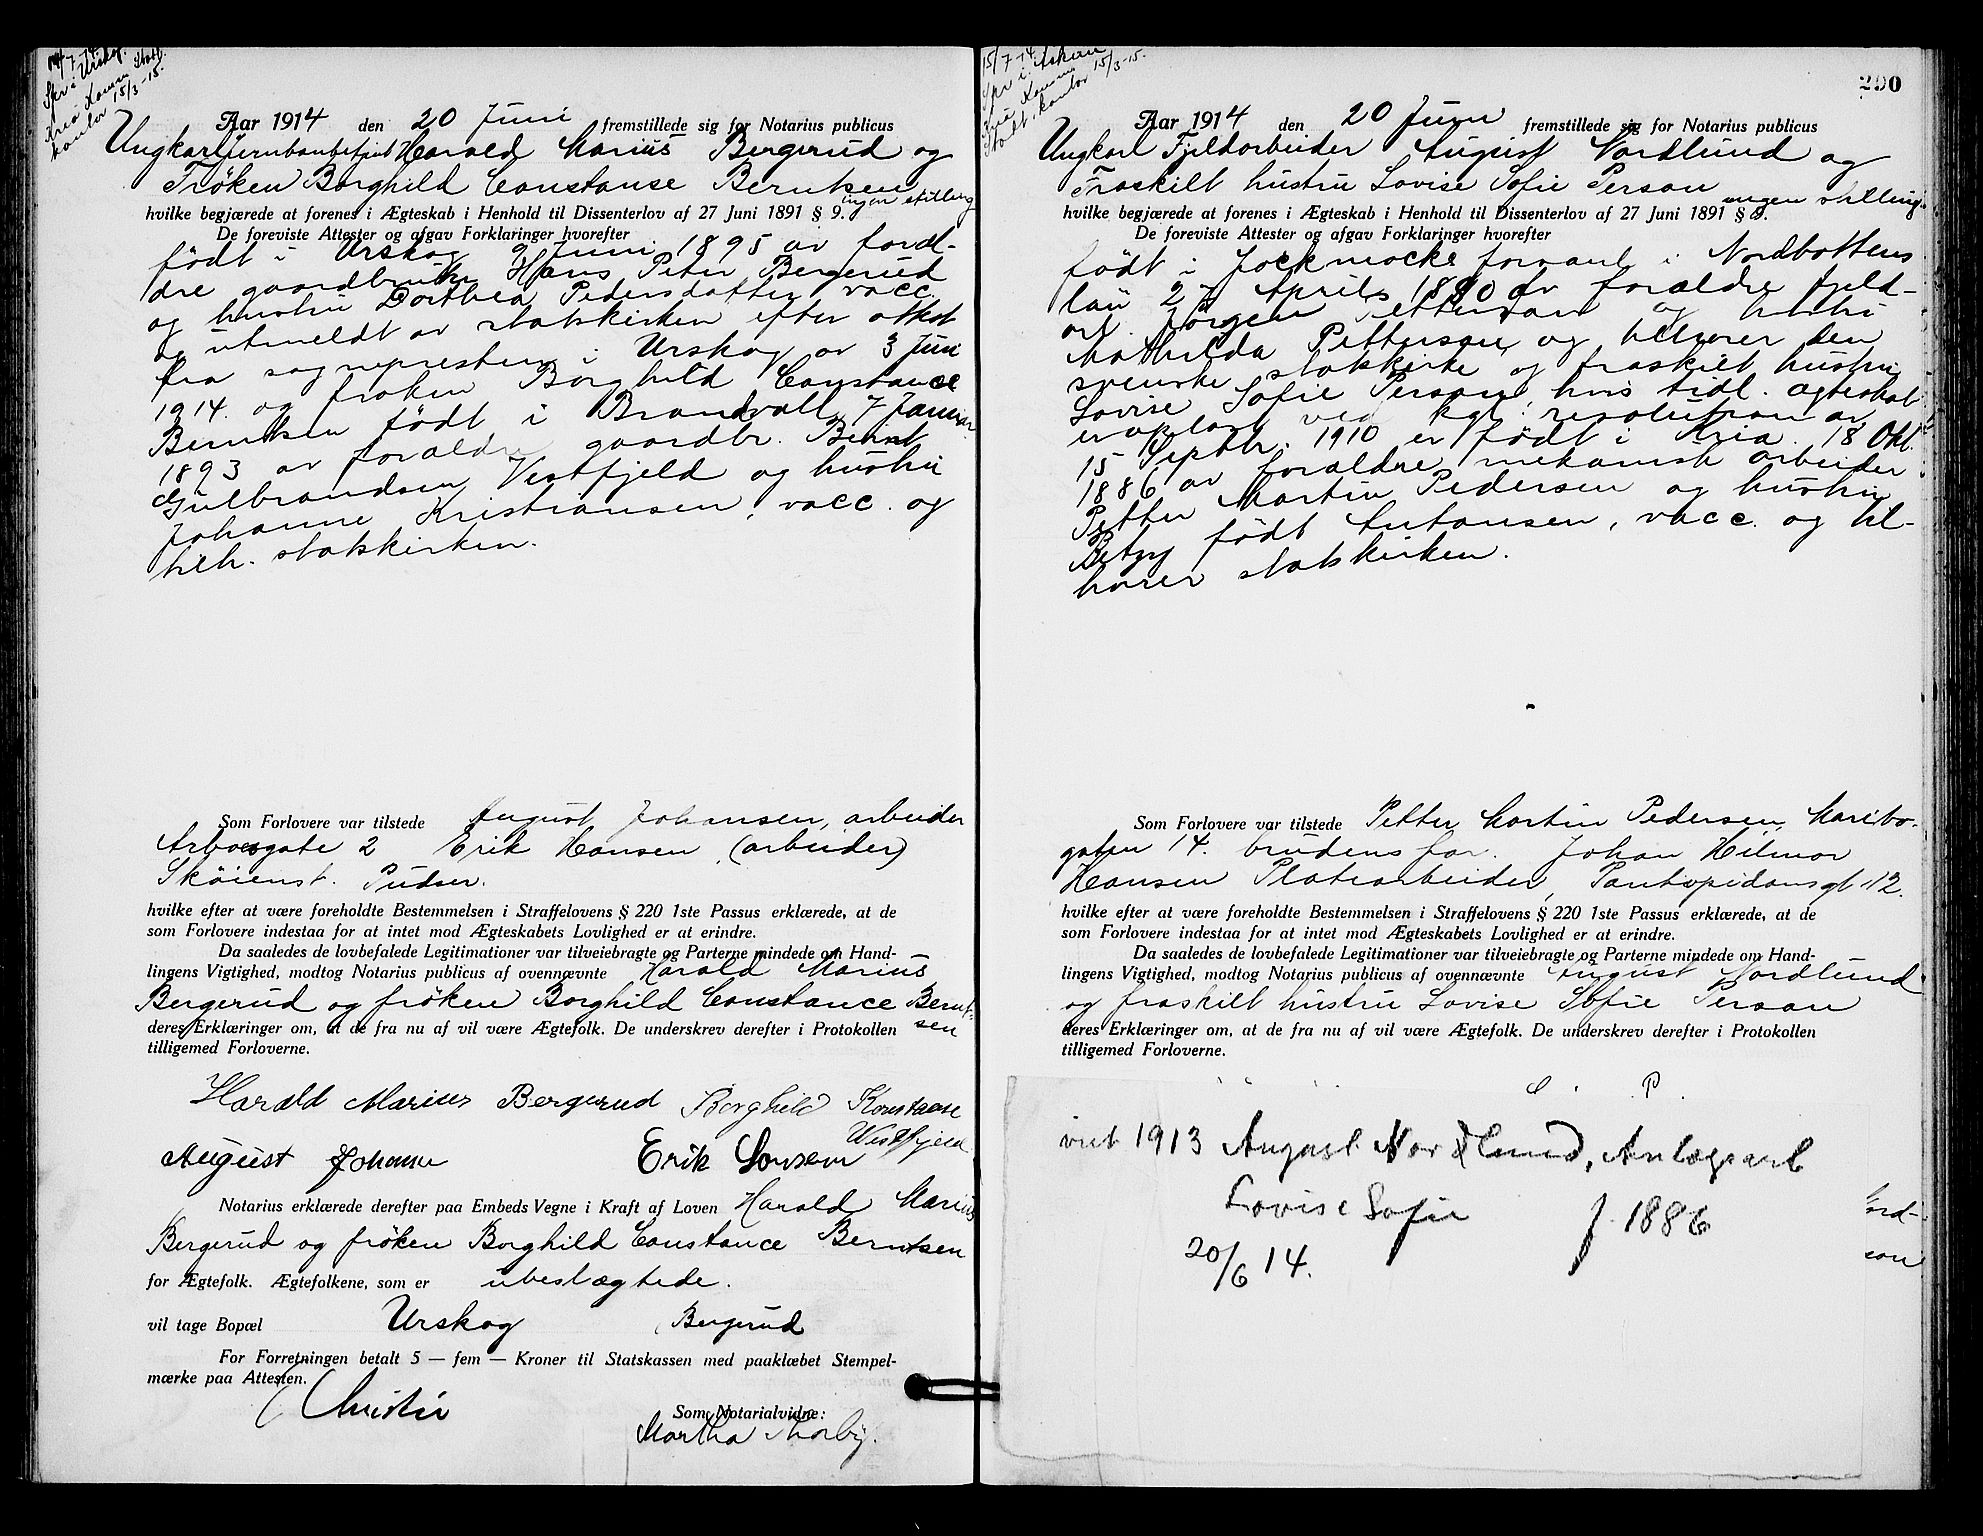 14/7-14
Spr i Urskog.
Kria Komm Statl.
kontor 15/3-15.
Aar 1914 den 20 Juni fremstillede sig for Notarius publicus
Ungkarl Jernbanbetjent Harald Marius Bergerud og
Frøken Borghild Constanse Berntsen
ingen stilling
hvilke begjærede at forenes i Ægteskab i Henhold til Dissenterlov af 27 Juni 1891 § 9.
De foreviste Attester og afgav Forklaringer hvorefter
født i Urskog 9 Juni 1895 av foræl-
dre gaardbruker Hans Peter Bergerud
og hustru Dorthea Pedersdatter vacc.
og utmeldt av statskirken efter attest
fra sognepresten i Urskog av 3 Juni
1914. og frøken Borghild Constance
Berntsen født i Brandvall 7 Januar
1893 av forældre gaardbr. Bernt
Gulbrandsen Vestfjeld og hustru
Johanne Kristiansen, vacc. og
tilh. statskirken.
Som Forlovere var tilstede August Johansen, arbeider
Arboesgate 2 Erik Hansen (arbeider)
Skøienst. Pudser.
hvilke efter at være foreholdte Bestemmelsen i Straffelovens § 220 1ste Passus erklærede, at de
som Forlovere indestaa for at intet mod Ægteskabets Lovlighed er at erindre.
Da saaledes de lovbefalede Legitimationer var tilveiebragte og Parterne mindede om Hand-
lingens Vigtighed, modtog Notarius publicus af ovennævnte Harald Marius
Bergerud og frøken Borghild Constance Bernt-
sen
deres Erklæringer om, at de fra nu af vil være Ægtefolk. De underskrev derefter i Protokollen
tilligemed Forloverne.
Harald Marius Bergerud Borghild Konstanse
Westfjeld
August Johansen Erik
Notarius erklærede derefter paa Embeds Vegne i Kraft af Loven Harald Marius
Bergerud og frøken Borghild Constance Berntsen
for Ægtefolk. Ægtefolkene, som er ubeslægtede.
vil tage Bopæl Urskog Bergerud
For Forretningen betalt 5 — fem — Kroner til Statskassen med paaklæbet Stempel-
mærke paa Attesten.
Som Notarialvidne:
Martha
290
15/7-14
Spr i Askim
Kria Komm
Stat. kontor 15/3-15.
Aar 1914 den 20 Juni fremstillede sig for Notarius publicus
Ungkarl Fjeldarbeider August Nordlund og
Fraskilt hustru Lovise Sofie Person
ingen stilling
hvilke begjærede at forenes i Ægteskab i Henhold til Dissenterlov af 27 Juni 1891 § 9.
De foreviste Attester og afgav Forklaringer hvorefter
født i Jockmocke forsaml i Nordbottens
län 27 April 1890 av forældre fjeld-
arb. Jørgen Petterson og hustru
Mathilda Petterson og tilhører den
svenske statskirke og fraskilt hustru
Lovise Sofie Person, hvis tidl. ægteskab
er opløst ved kgl. resolution av
15 Septbr. 1910 er født i Kria. 18 Okt.
1886 av forældre mekanisk arbeider
Petter Martin Pedersen og hustru
Betzy født Antonsen, vacc. og til-
hører statskirken.
Som Forlovere var tilstede Petter Martin Pedersen, Maribo-
gaten 14. brudens far. Johan Hilmar
Hansen Platearbeider, Pontopidansgt 12.
hvilke efter at være foreholdte Bestemmelsen i Straffelovens § 220 1ste Passus erklærede, at de
som Forlovere indestaa for at intet mod Ægteskabets Lovlighed er at erindre.
Da saaledes de lovbefalede Legitimationer var tilveiebragte og Parterne mindede om Hand-
lingens Vigtighed, modtog Notarius publicus af ovennævnte August Nordlund
og fraskilt hustru Lovise Sofie Person
deres Erklæringer om, at de fra nu af vil være Ægtefolk. De underskrev derefter i Protokollen
tilligemed Forloverne.
1913 August Nordlund, Anlægsarb
Lovise Sofie f. 1886
20/6 14.